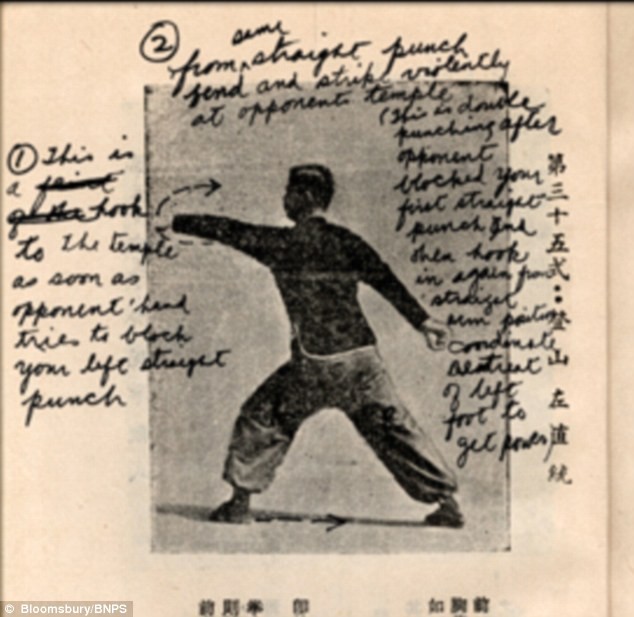 ② same
from straight punch
and strike violently
at opponent temple
(This is double
punching after
opponent
blocked your
first straight
punch and
then hook
in again from
straight
arm position
coordinate
of left
foot to
get power)
① This is
a
hook
to the temple
as soon as
opponent' hand
tries to block
your left straight
punch
第三十五式：登山左直統
Bloomsbury/BNPS